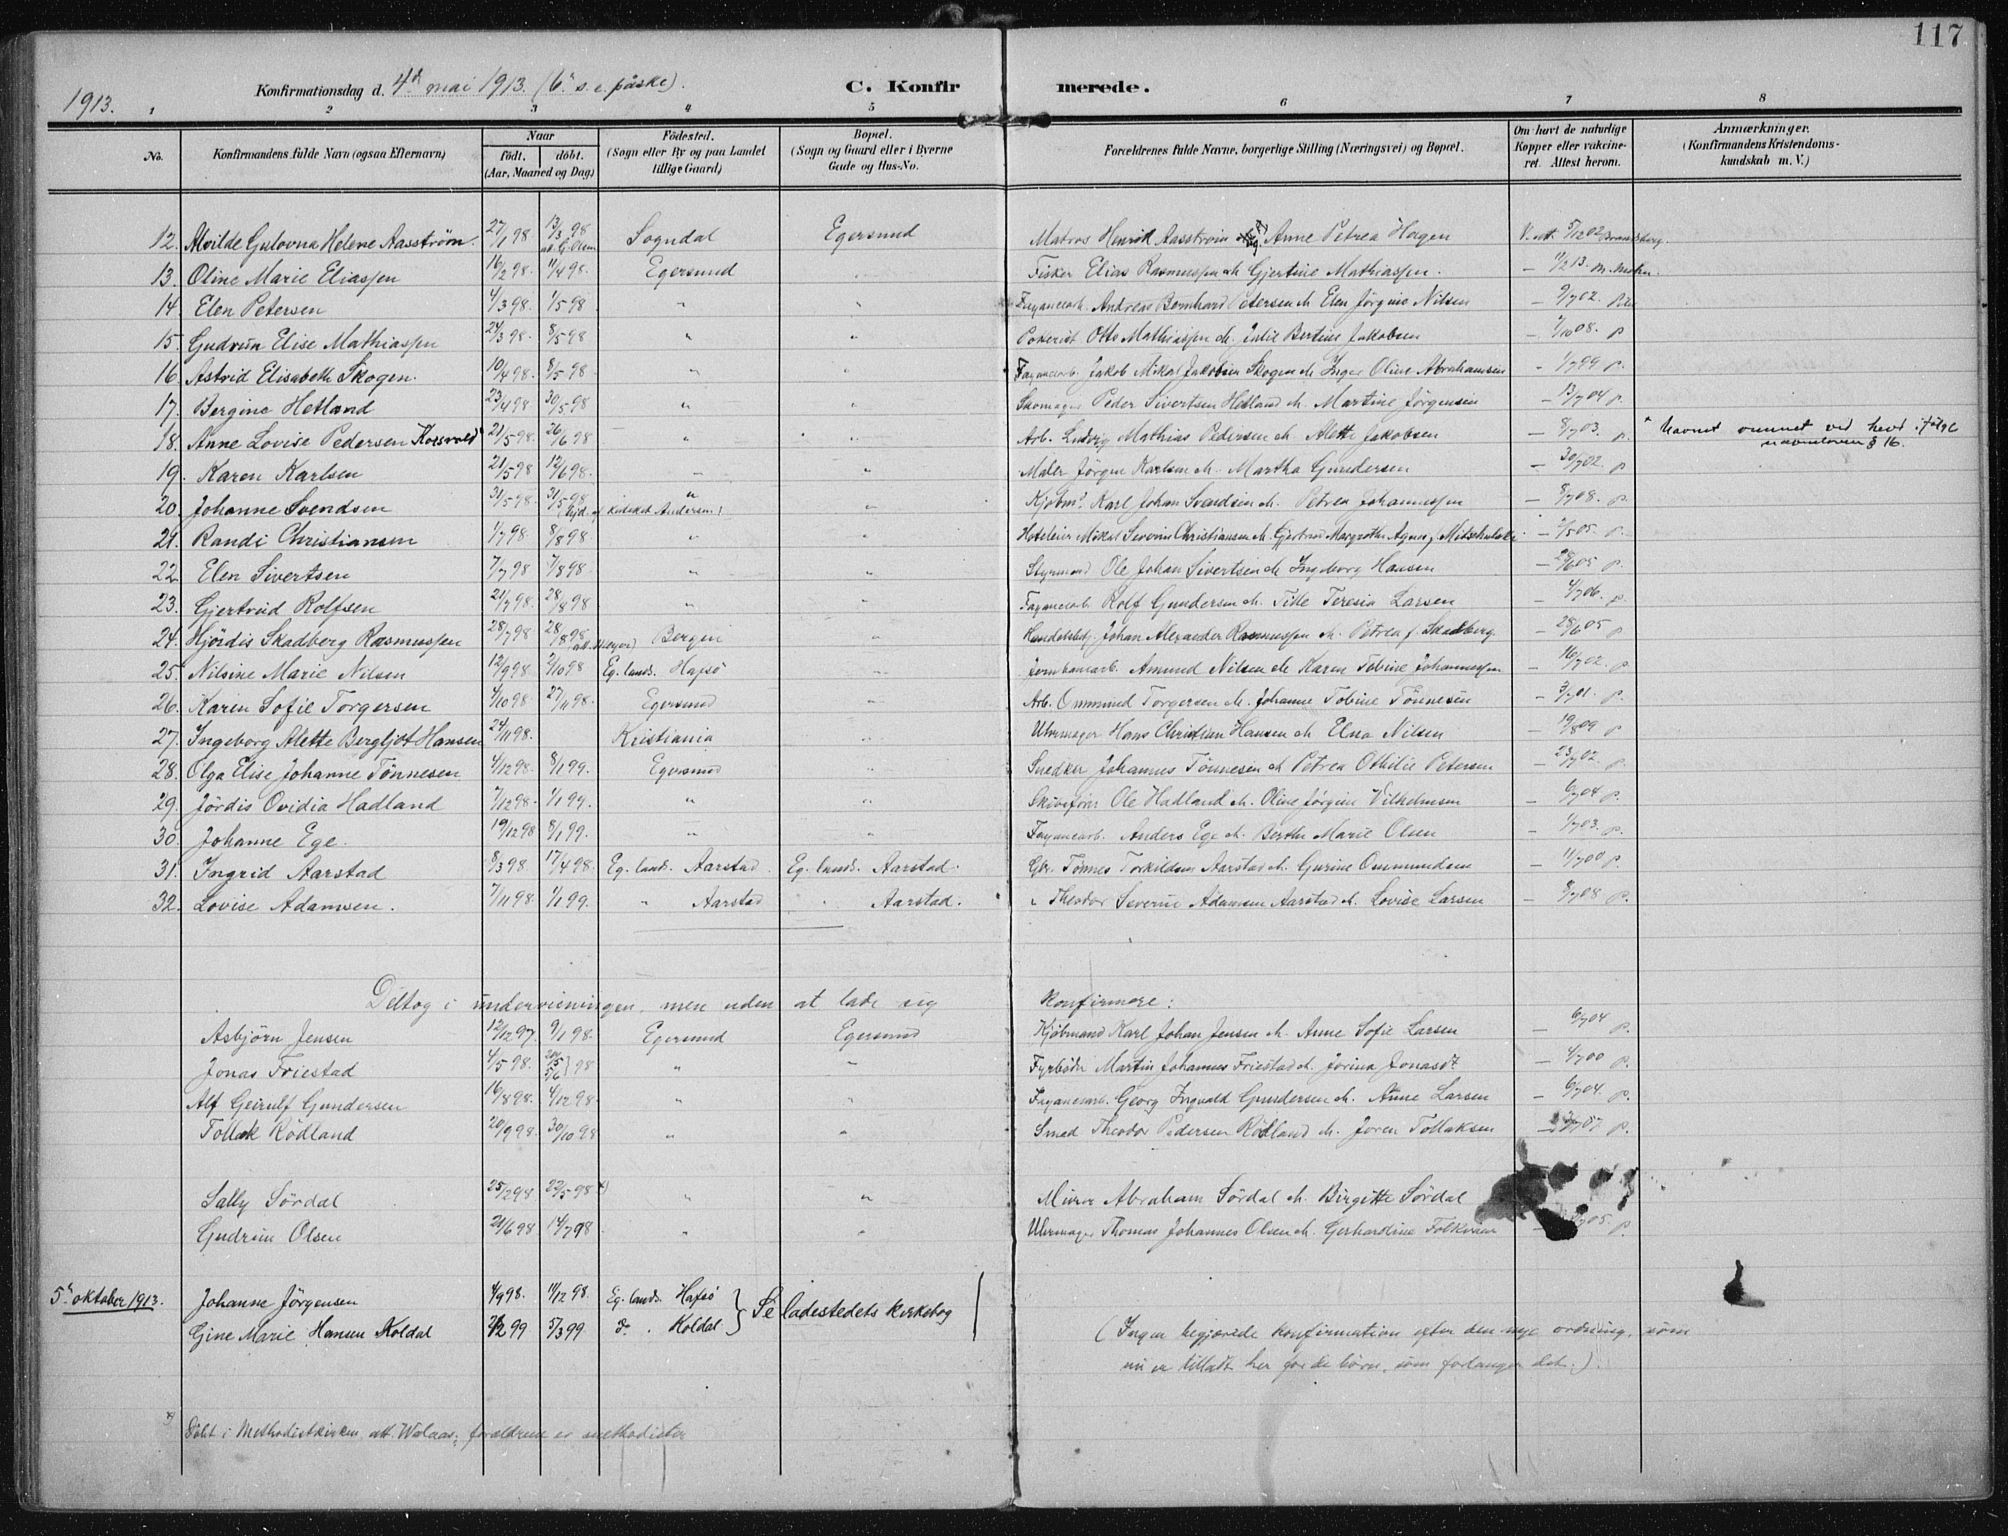 117
1913.
Konfirmationsdag d. 4de mai 1913. (6te s. e. påske).
C. Konfirmerede.
1 2 3 4 5 6 7 8
No.
Konfirmandens fulde Navn (ogsaa Efternavn)
Naar
født. døbt.
(Aar, Maaned og Dag)
Fødested.
(Sogn eller By og paa Landet
tillige Gaard)
Bopæl.
(Sogn og Gaard eller i Byerne
Gade og Hus-No.
Forældrenes fulde Navne, borgerlige Stilling (Næringsvei) og Bopæl.
Om havt de naturlige
Kopper eller vakcine-
ret. Attest herom.
Anmærkninger.
(Konfirmandens Kristendoms-
kundskab m. V.)
12. Alvilde Gulovna Helene Aasstrøm. 27/1 98 13/3 98 Sogndal Egersund Matros Henrik Aasstrøm og Anne Petrea Hagen 5/12 02
13. Oline Marie Eliassen 16/2 98. 11/4 98. Egersund " Fisker Elias Rasmussen & Gjertine Mathiassen.
14. Elen Petersen 4/3 98. 1/5 98 " " Fayancearb. Andreas Bernhard Petersen & Elen Jørgine Nilsen — 9/7 02.
15. Gudrun Elise Mathiassen 24/3 98. 8/5 98 " " Otto Mathiassen & Bertine Jakobsen — 7/10 08. p
16. Astrid Elisabeth Skogen. 10/4 98. 8/5 98 " " Fayancearb. Jakob Mikal Jakobsen Skogen & Inger Oline Abrahamsen — 1/7 99 p.
17. Bergine Hetland 23/4 98 30/5 98 " " Skomager Peder Sivertsen Hetland & Martine Jørgensen — 13/7 04 p.
18. Anne Lovise Pedersen Kossvold* 21/5 98. 26/6 98 " " Arb. Ludvig Mathias Pedersen & Alette Jakobsen — 8/7 03. p * Navnet vunnet ved hevd ifølge
navneloven § 16.
19. Karen Karlsen 21/5 98 12/6 98. " " Maler Jørgen Karlsen & Martha Gundersen — 30/7 02. p
20. Johanne Svendsen 31/5 98. 31/5 98 " " Kjøbmd. Karl Johan Svendsen & Petrea Johannessen — 8/7 08. p.
21. Randi Christiansen 1/7 98 8/8 98. " " Hoteleier Mikal Severin Christiansen & Gjertrud Margrethe Agnes — 2/5 05. p.
22. Elen Sivertsen 7/7 98 7/8 98. " " Styrmand Ole Johan Sivertsen & Ingeborg Hansen — 28/6 05 p.
23. Gjertrud Rolfsen 21/7 98. 28/8 98 " " Fayancearb. Rolf Gundersen & Teresia Larsen — 4/7 06. p
24. Hjördis Skadberg Rasmussen 28/7 98. 28/8 98 Bergen " Handelsbtj. Johan Alexander Rasmussen & Petrea f. Skadberg. — 28/6 05 p
25. Nilsine Marie Nilsen 12/9 98 2/10 98 Eg. lands. Hafsø " Jernbanearb. Amund Nilsen & Karen Tobine Johannessen — 16/7 02. p
26. Karen Sofie Torgersen 4/10 98 27/11 98. Egersund " Arb. Ommund Torgersen & Johanne Tobine Tønnesen — 3/7 01. p.
27. Ingeborg Alette Bergljot Hansen 24/11 98. Kristiania " Uhrmager Hans Christian Hansen & Elna Nilsen — 19/8 09 p
28. Olga Elise Johanne Tönnesen 4/12 98. 8/1 99. Egersund " Snedker Johannes Tønnesen & Petrea Othilie Petersen — 23/7 02. p
29. Jördis Ovidia Hadland 7/12 98. 1/1 99. " " Ole Hadland & Oline Jørgine Vilhelmsen — 6/7 04 p.
30. Johanne Ege. 19/12 98 8/1 99. " " Fayancearb. Anders Ege & Berthe Marie Olsen — 1/7 03. p.
31. Ingrid Aarstad 8/3 98 17/4 98. Eg. lands. Aarstad Eg. lands. Aarstad. Gbr. Tønnes Torkildsen Aarstad & Gurine Ommundsen — 11/7 00 p.
32. Lovise Adamsen. 7/11 98. 1/1 99. " Aarstad " Aarstad. " Theodor Severin Adamsen Aarstad & Lovise Larsen — 8/7 08 p.
Deltog i undervisningen, men uden at lade sig konfirmere:
Asbjørn Jensen 12/12 97. 9/1 98. Egersund Egersund Kjøbmand Karl Johan Jensen & Anne Sofie Larsen — 6/7 04 p.
Jonas Friestad 4/5 98. 20/5 5/6 } 98 " " Fyrbøder Martin Johannes Friestad & Jorina Jonasdt — 4/7 00 p.
Alf Geirulf Gundersen 16/8 98. 4/12 98. " " Fayancearb. Georg Ingvald Gundersen & Anne Larsen — 6/7 04. p.
Tollak Rödland 20/9 98. 30/10 98 " " Smed Theodor Pedersen Rødland & Joren Tollaksen p.
Sally Sördal 25/2 98 22/5 98 *) " " Murer Abraham Sørdal & Birgitte Sørdal
Gudrun Olsen 21/6 98 14/7 98 " " Uhrmager Thomas Johannes Olsen & Gerhardine Folkvam — 05. p.
5te oktober 1913. Johanne Jörgensen 4/9 98. 11/12 98. Eg. lands. Hafsø } Se ladestedets kirkebog
Gine Marie Hansen Koldal 2/2 99 5/3 99 do. " Koldal
( Ingen begjærede konfirmation efter den nye ordning, som
nu er tilladt her for de børn, som forlanger det.).
*) Døbt i Methodistkirken, att. Walaas; forældrene er methodister